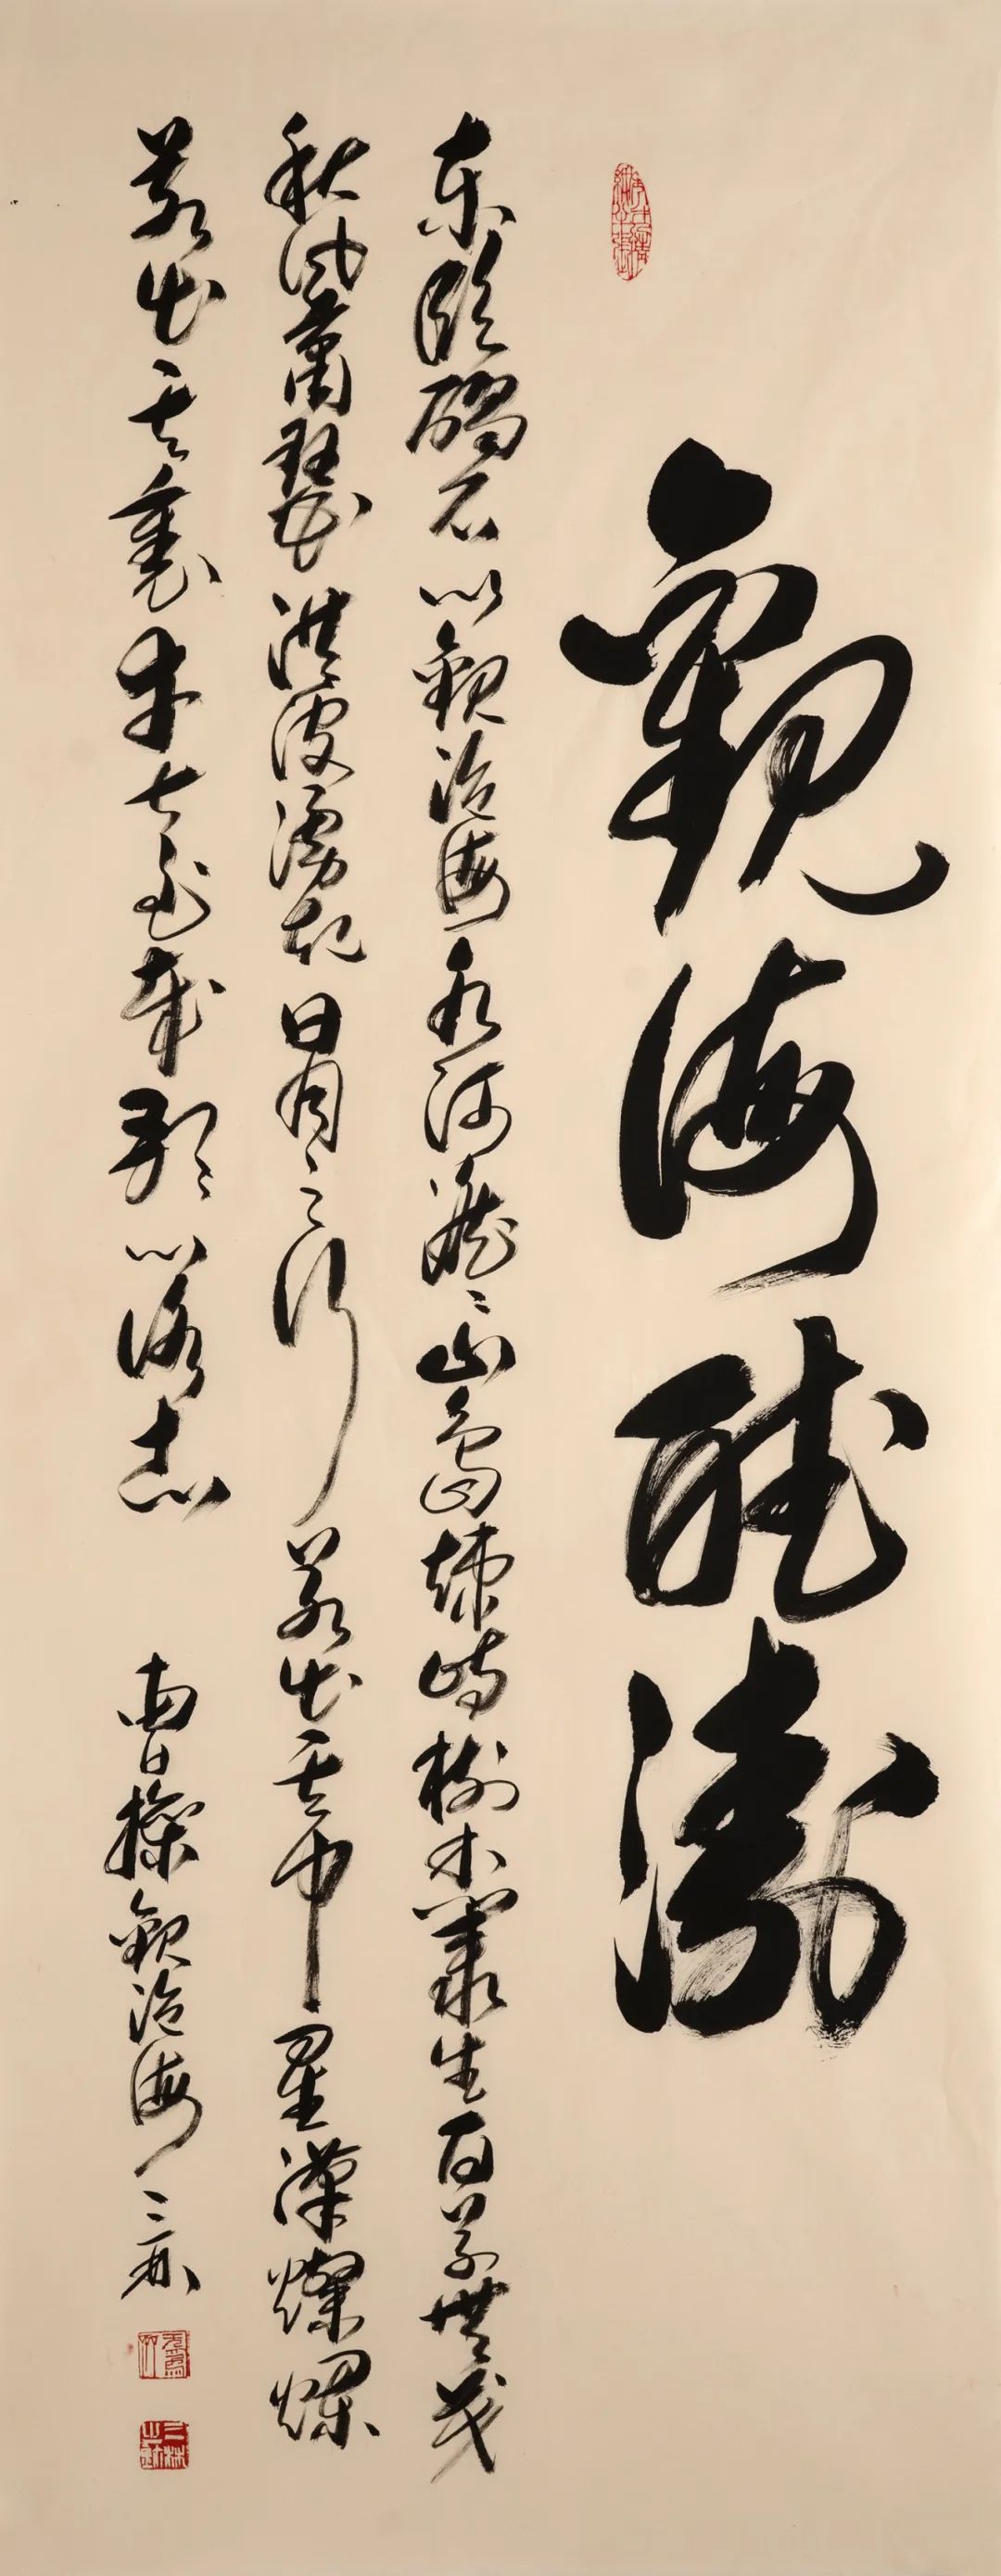 觀海聽濤
東臨碣石以觀滄海水何澹〻山島竦峙樹木叢生百草豐茂
秋風蕭瑟洪波湧起日月之行若出其中星漢燦爛
若出其裏幸甚至哉歌以詠志 曹操觀滄海